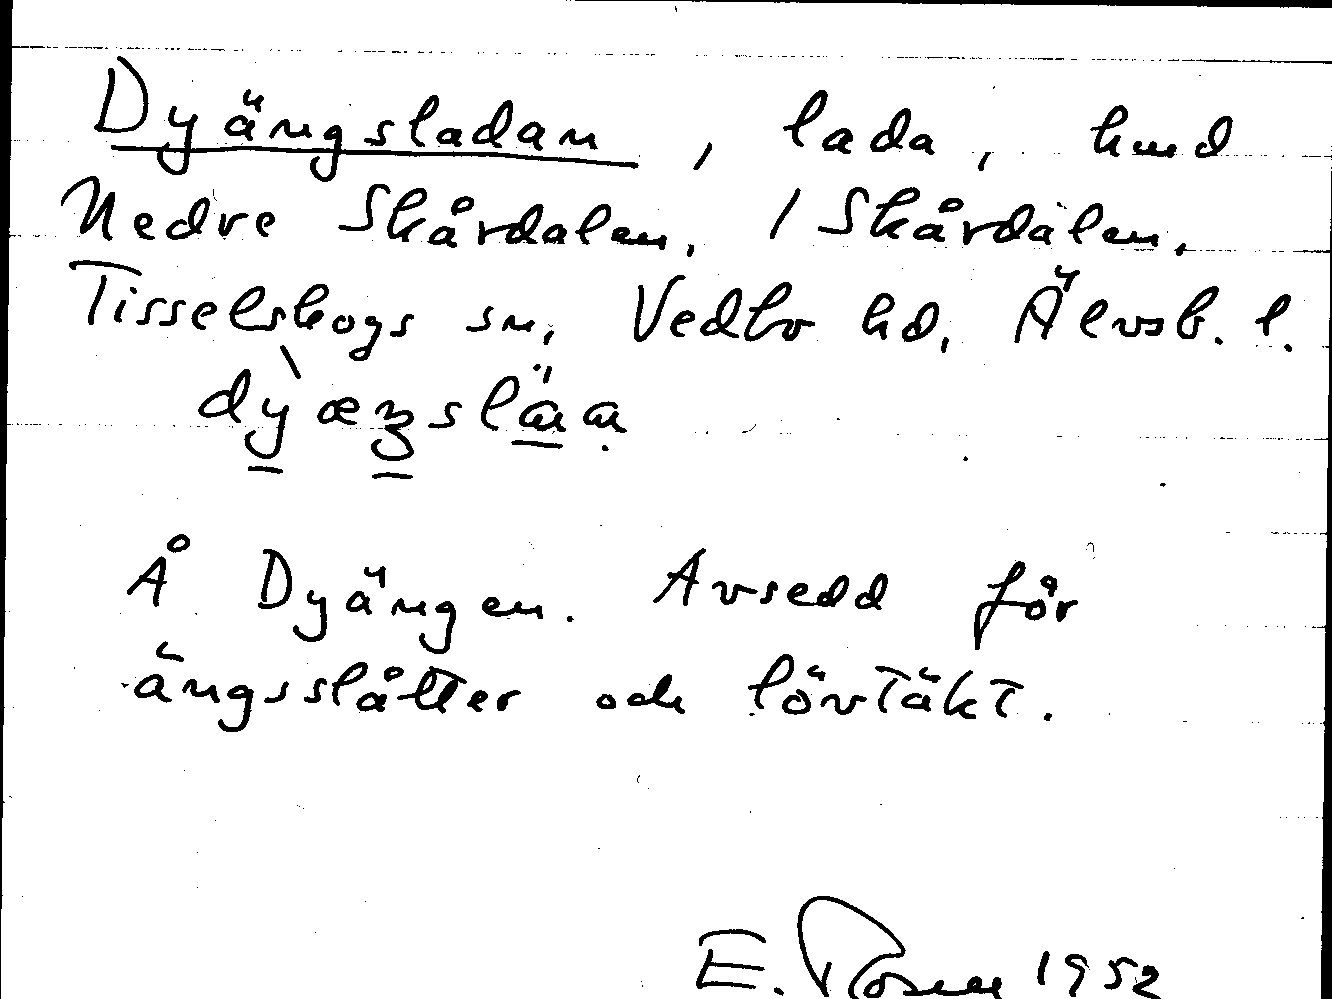 Dyängsladan, lada, hmd
Nedre Skårdalen, 1 Skårdalen,
Tisselskogs sn, Vedbo hd, Älvsb. l.
Å Dyängen. Avsedd för
ängsslåtter och lövtäkt.
E. Rosen 1952